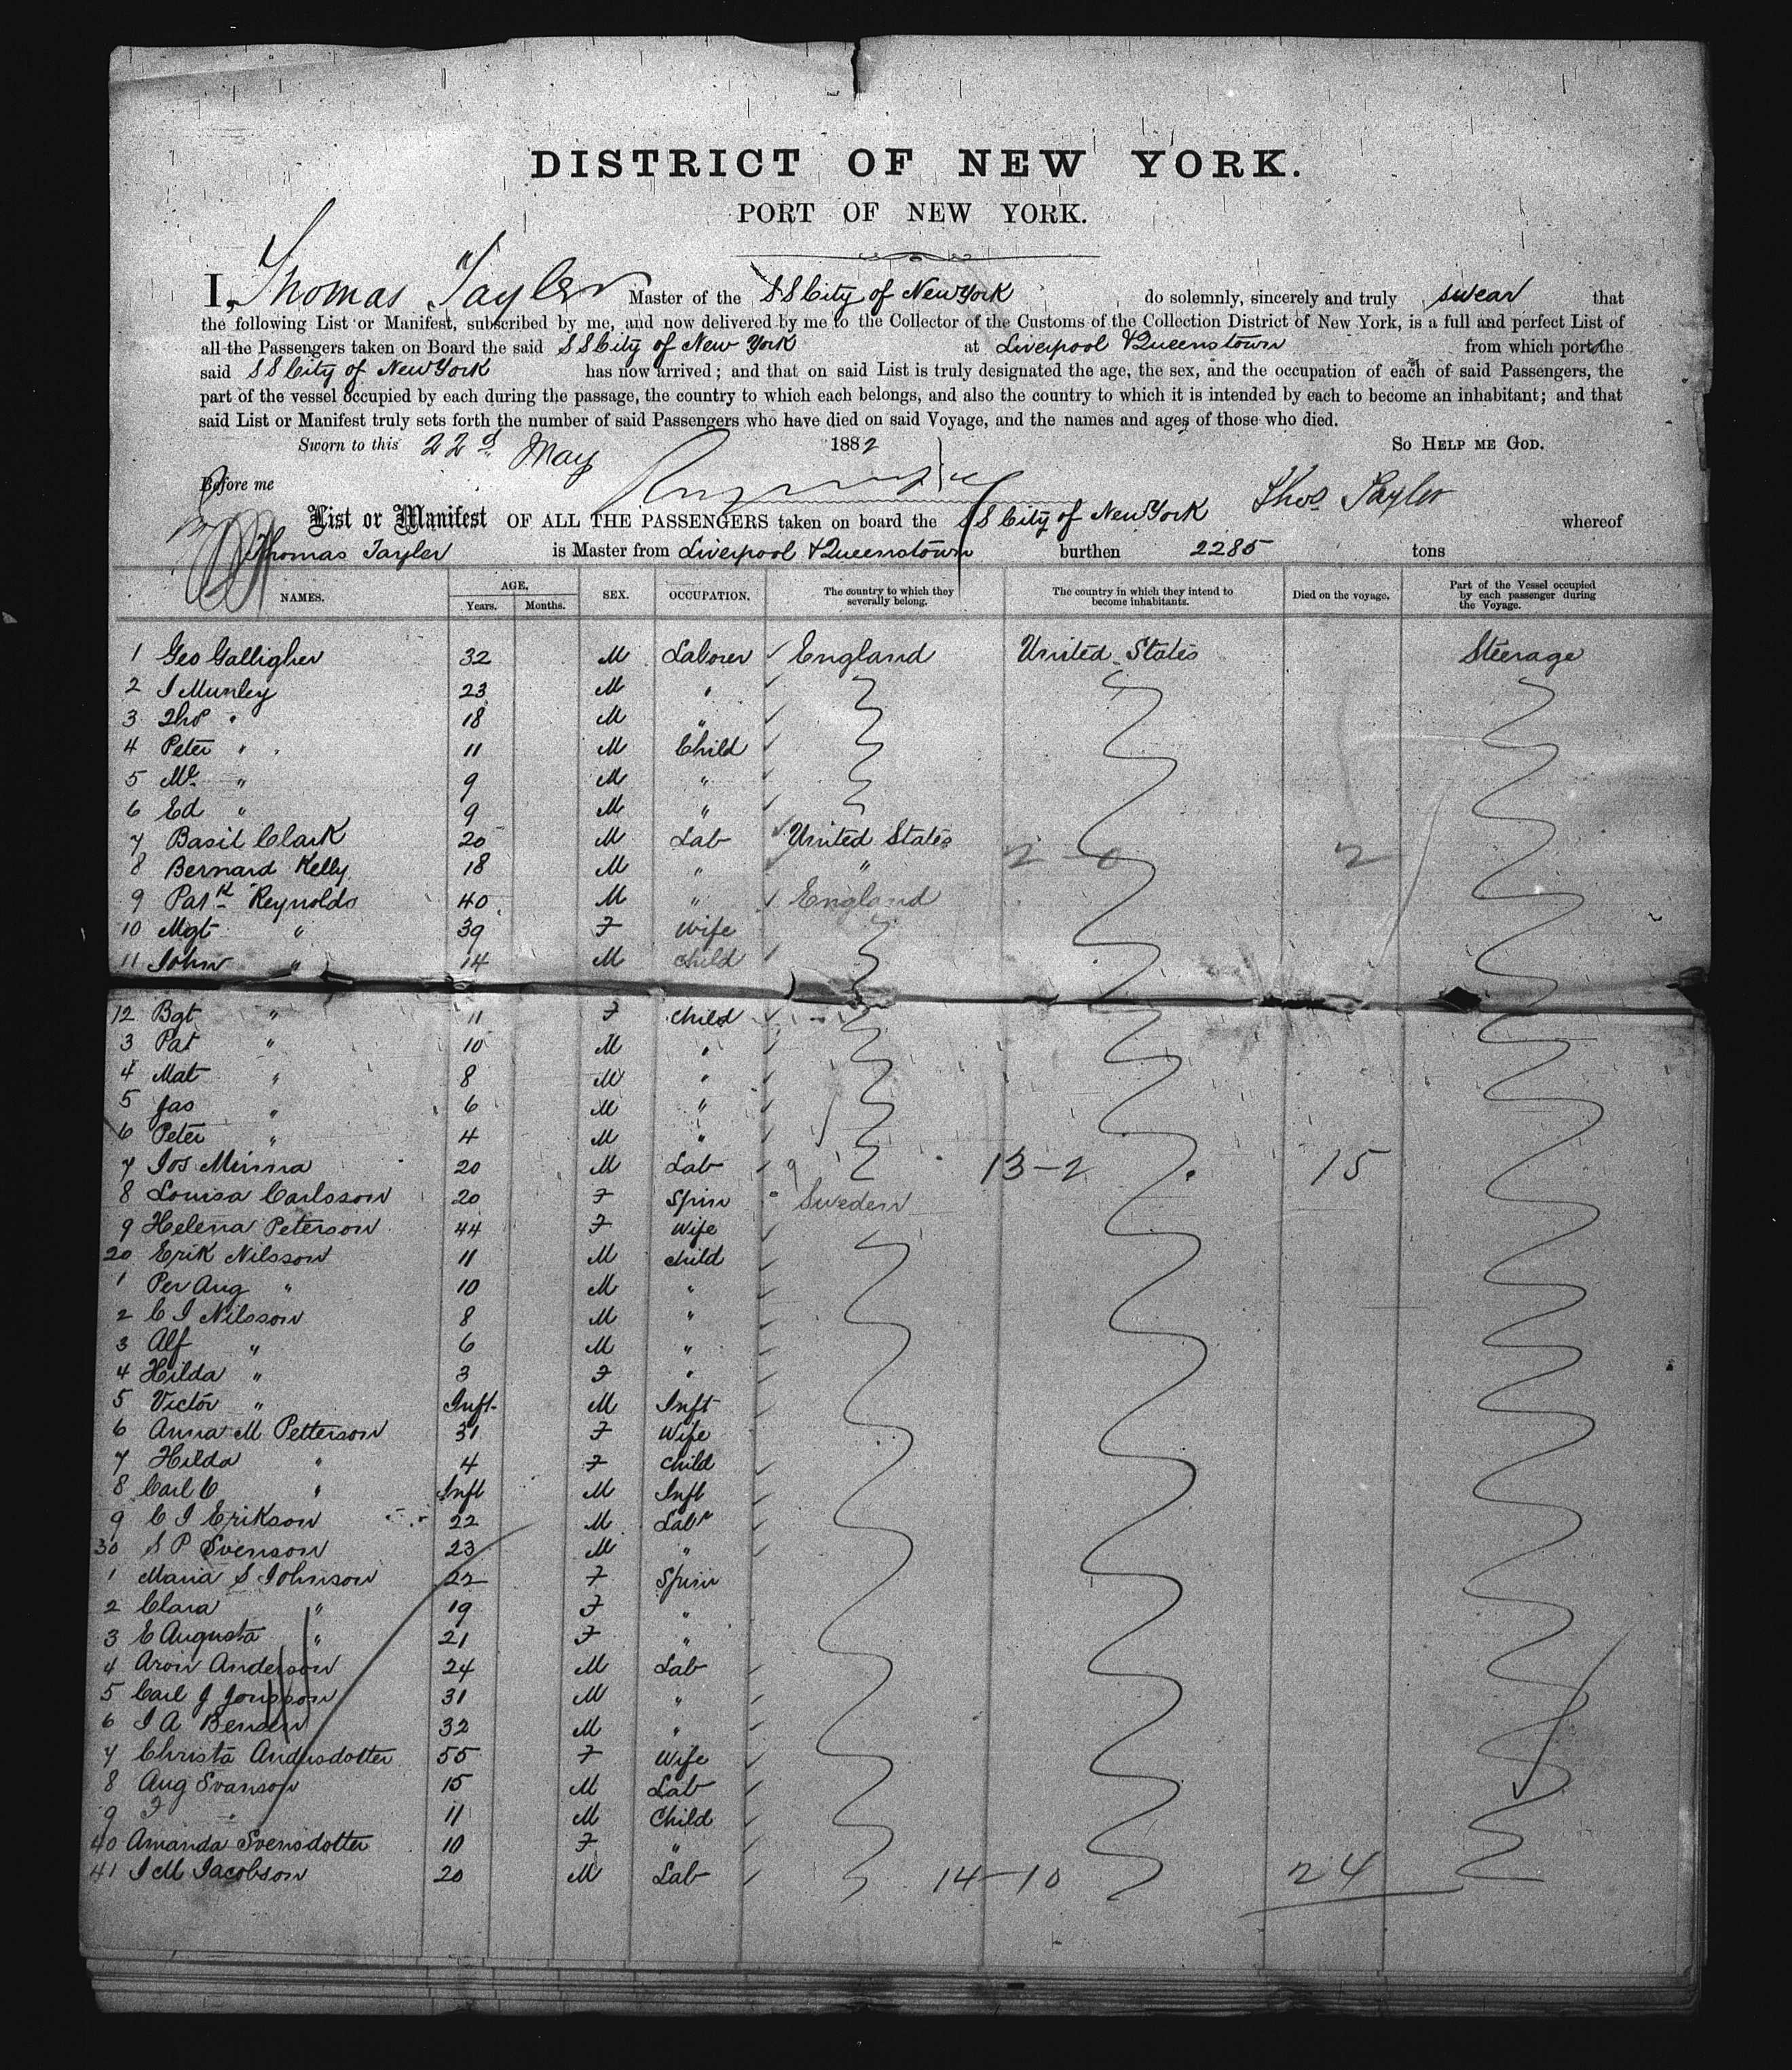 DISTRICT OF NEW YORK.
PORT OF NEW YORK.
I, Thomas Tayler Master of the SS City of New York do solemnly, sincerely and truly swear that
the following List or Manifest, subscribed by me, and now delivered by me to the Collector of the Customs of the Collection District of New York, is a full and perfect List of
all the Passengers taken on Board the said SS City of New York at Liverpool & Queenstown from which port the
said SS City of New York has now arrived; and that on said List is truly designated the age, the sex, and the occupation of each of said Passengers, the
part of the vessel occupied by each during the passage, the country to which each belongs, and also the country to which it is intended by each to become an inhabitant; and that
said List or Manifest truly sets forth the number of said Passengers who have died on said Voyage, and the names and ages of those who died.
Sworn to this 22d May 1882 SO HELP ME GOD.
Before me
Thos Tayler
List or Manifest OF ALL THE PASSENGERS taken on board the SS City of New York whereof
Thomas Tayler is Master from Liverpool & Queenstown burthen 2285 tons
NAMES. AGE. Years. Months. SEX. OCCUPATION. The country to which they severally belong. The country in which they intend to become inhabitants. Died on the voyage. Part of the Vessel occupied by each passenger during the Voyage.
1 Geo Galligher 32 M Laborer England United States Steerage
2 J Munley 23 M "
3 Thos " 18 M "
4 Peter " 11 M Child
5 " 9 M "
6 Ed " 9 M "
7 Basil Clark 20 M Lab United States
8 Bernard Kelly 18 M " " 2-0 2
9 Patk Reynolds 40 M " England
10 Mgt " 39 F Wife
11 John " 14 M Child
12 Bgt " 11 F Child
3 Pat " 10 M "
4 Mat " 8 M "
5 Jas " 6 M "
6 Peter " 4 M "
7 Jos Minna 20 M Lab 13-2 15
8 Louisa Carlsson 20 F Spin Sweden
9 Helena Peterson 44 F Wife
20 Erik Nilsson 11 M Child
1 Per Aug " 10 M "
2 C J Nilsson 8 M "
3 Alf " 6 M "
4 Hilda " 3 F "
5 Victor " Inft M Inft
6 Anna M Petterson 31 F Wife
7 Hilda " 4 F Child
8 Carl C " Inft M Inft
9 C J Erikson 22 M Labr
30 S P Svenson 23 M "
1 Maria S Johnson 22 F Spin
2 Clara " 19 F "
3 E Augusta " 21 F "
4 Aron Anderson 24 M Lab
5 Carl J Jonsson 31 M "
6 J A Benson 32 M "
7 Christa Andersdotter 55 F Wife
8 Aug Svanson 15 M Lab
9 " 11 M Child
40 Amanda Svensdotter 10 F "
41 J M Jacobson 20 M Lab 14-10 24